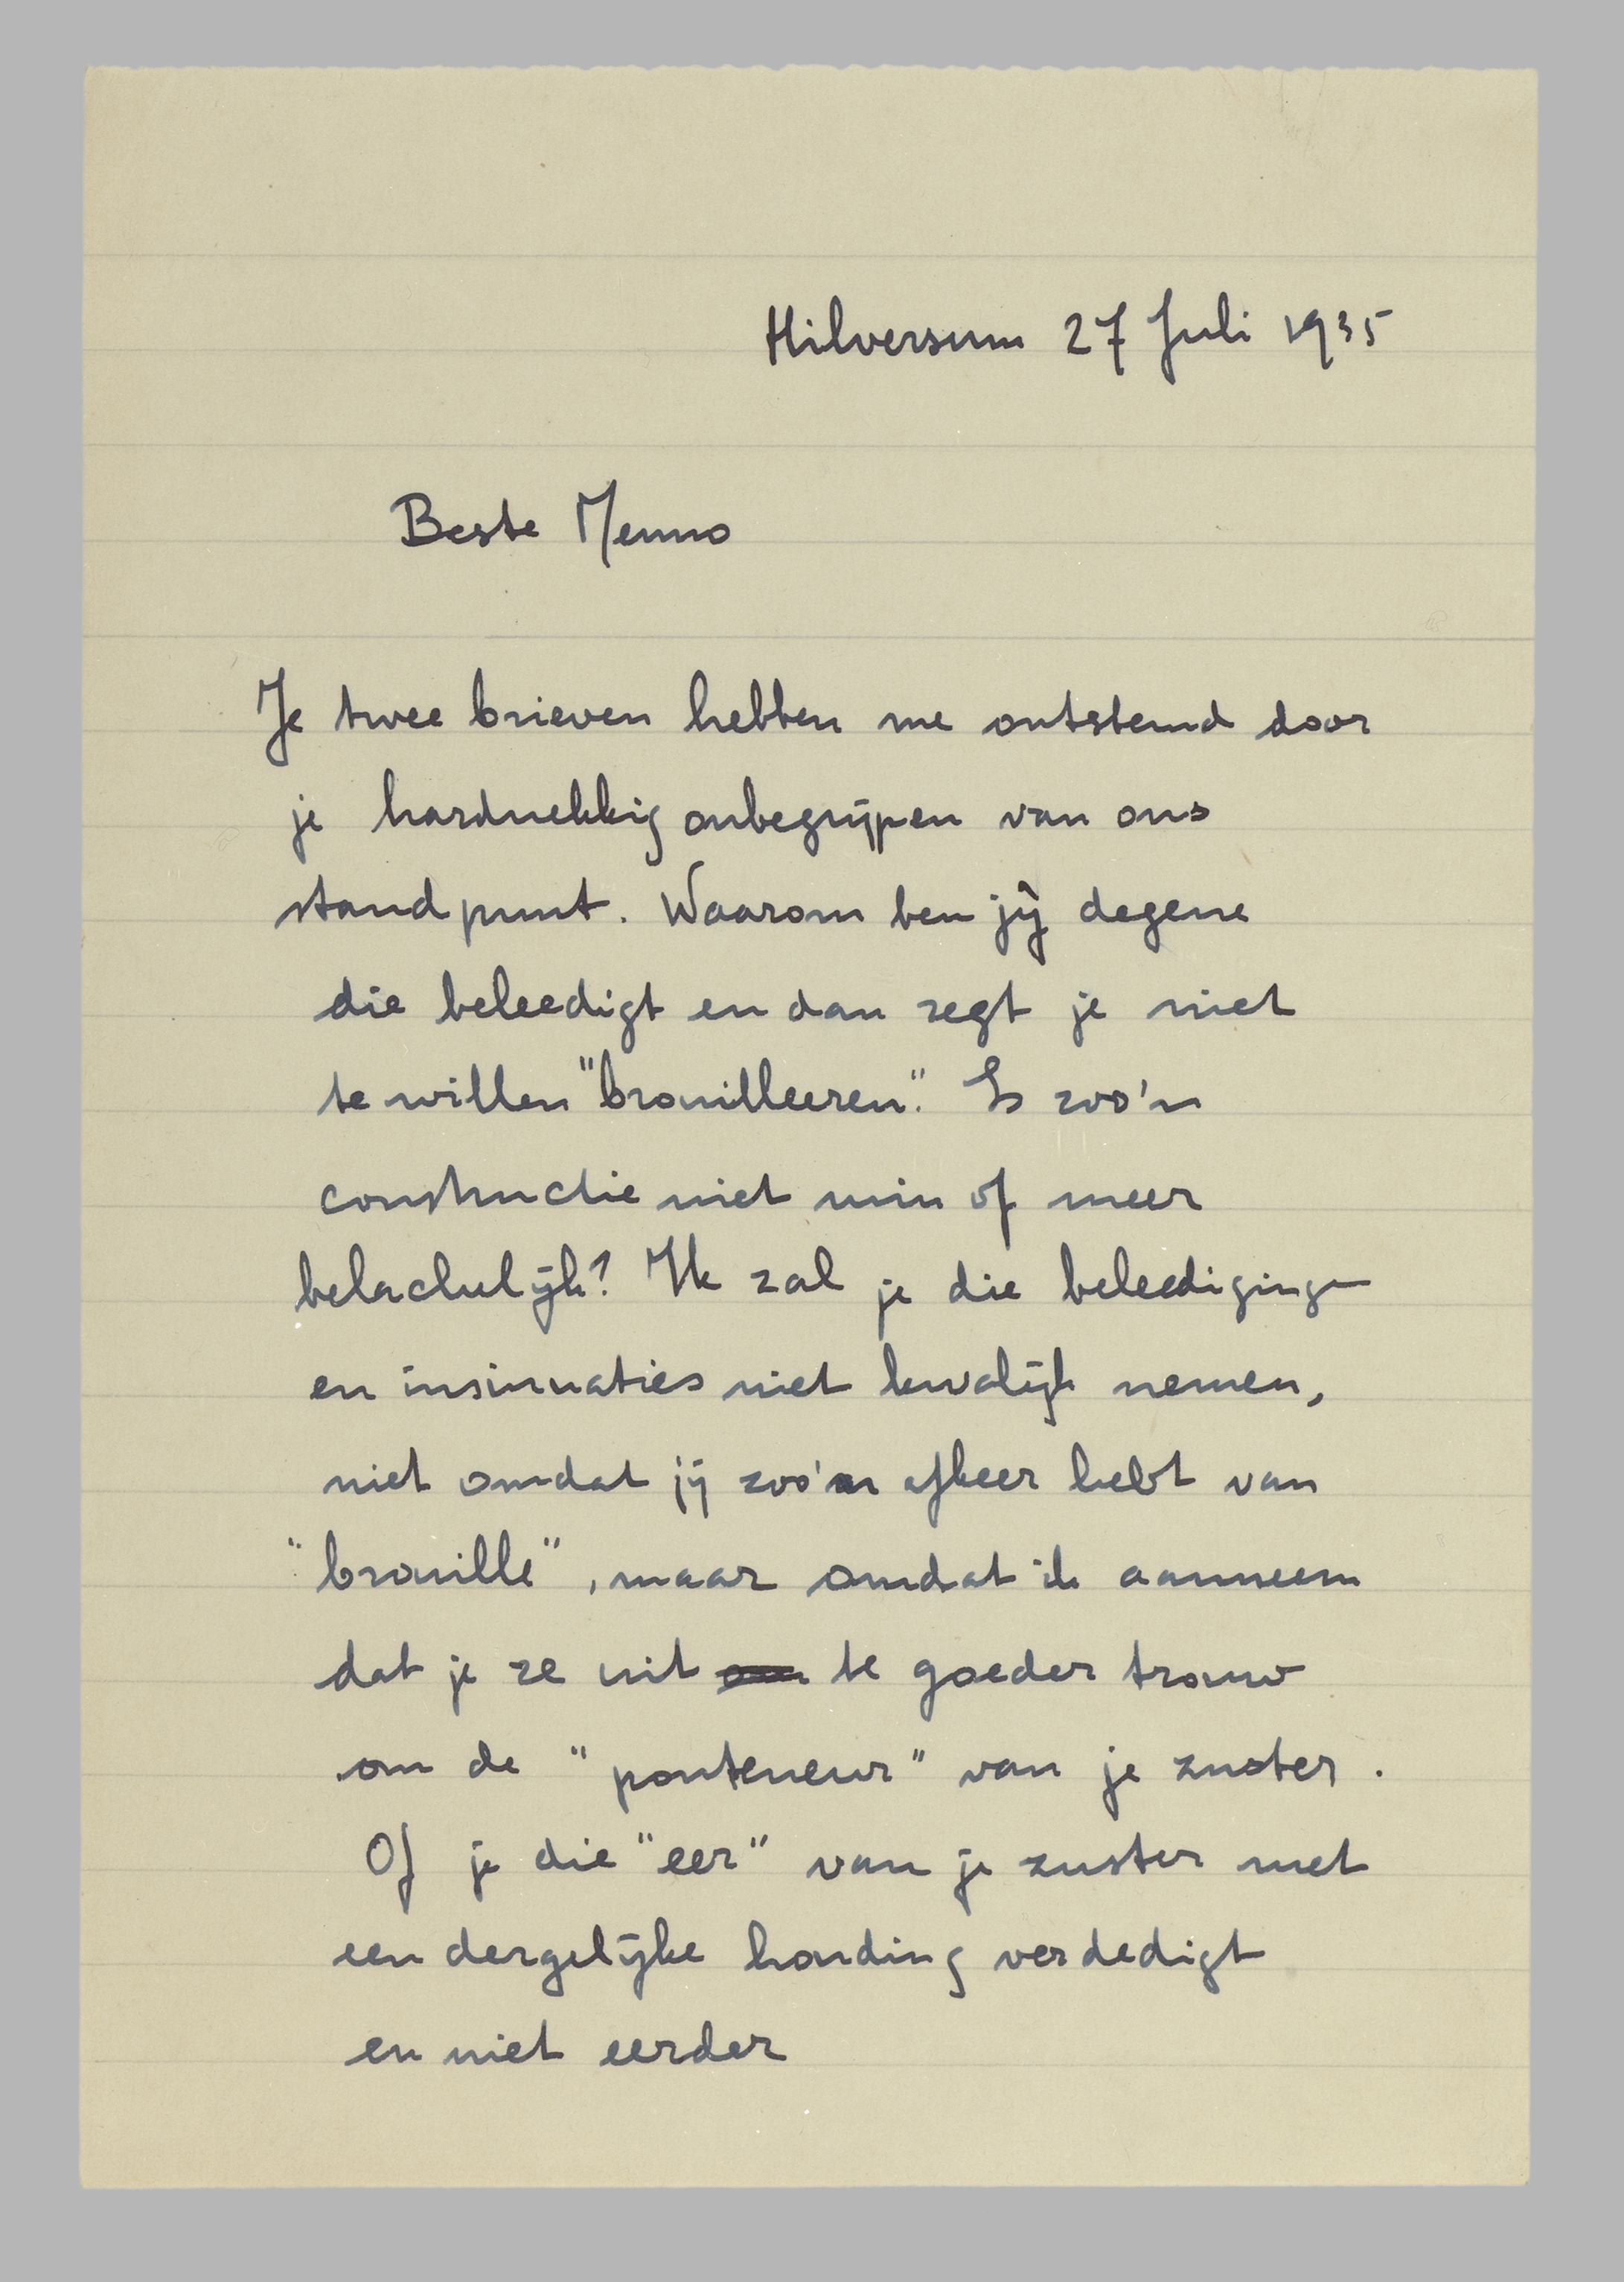 Hilversum 27 Juli 1935
Beste Menno
Je twee brieven hebben me ontstemd door
je hardnekkig onbegrijpen van ons
standpunt. Waarom ben jij degene
die beleedigt en dan zegt je niet
te willen "brouilleeren". Is zoo'n
constructie niet min of meer
belachelijk? Ik zal je die beleediging
en insinuaties niet kwalijk nemen,
niet omdat jij zoo'n afkeer hebt van
"brouille", maar omdat ik aanneem
dat je ze uit te goeder trouw
om de "ponteneur" van je zuster.
Of je die "eer" van je zuster met
een dergelijke houding verdedigt
en niet eerder